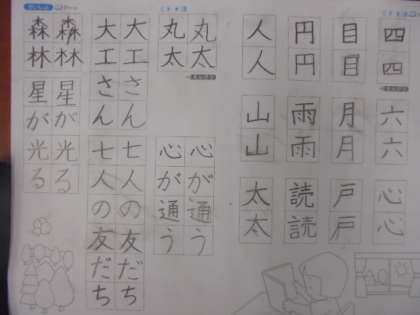 四四
六六
心心
目目
月月
戸戸
円円
雨雨
読読
人人
山山
太太
丸太
丸太
心が通う
心が通う
大工さん
大工さん
七人の友だち
七人の友だち
森林
森林
星が光る
星が光る